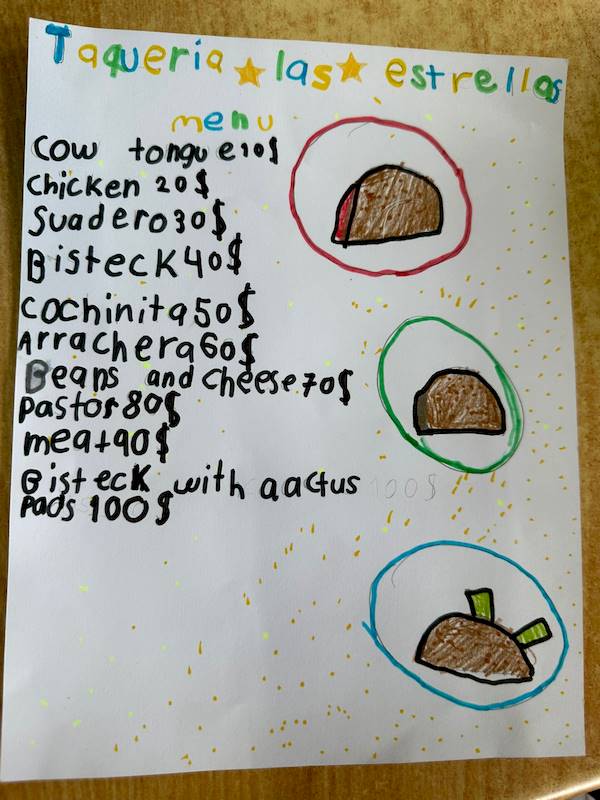 Taqueria las estrellas
menu
Cow tongue 10$
Chicken 20$
Suadero 30$
Bisteck 40$
Cochinita 50$
Arrachera 60$
Beans and cheese 70$
pastor 80$
meat 90$
Bisteck with aactus 100$
Pads 100$